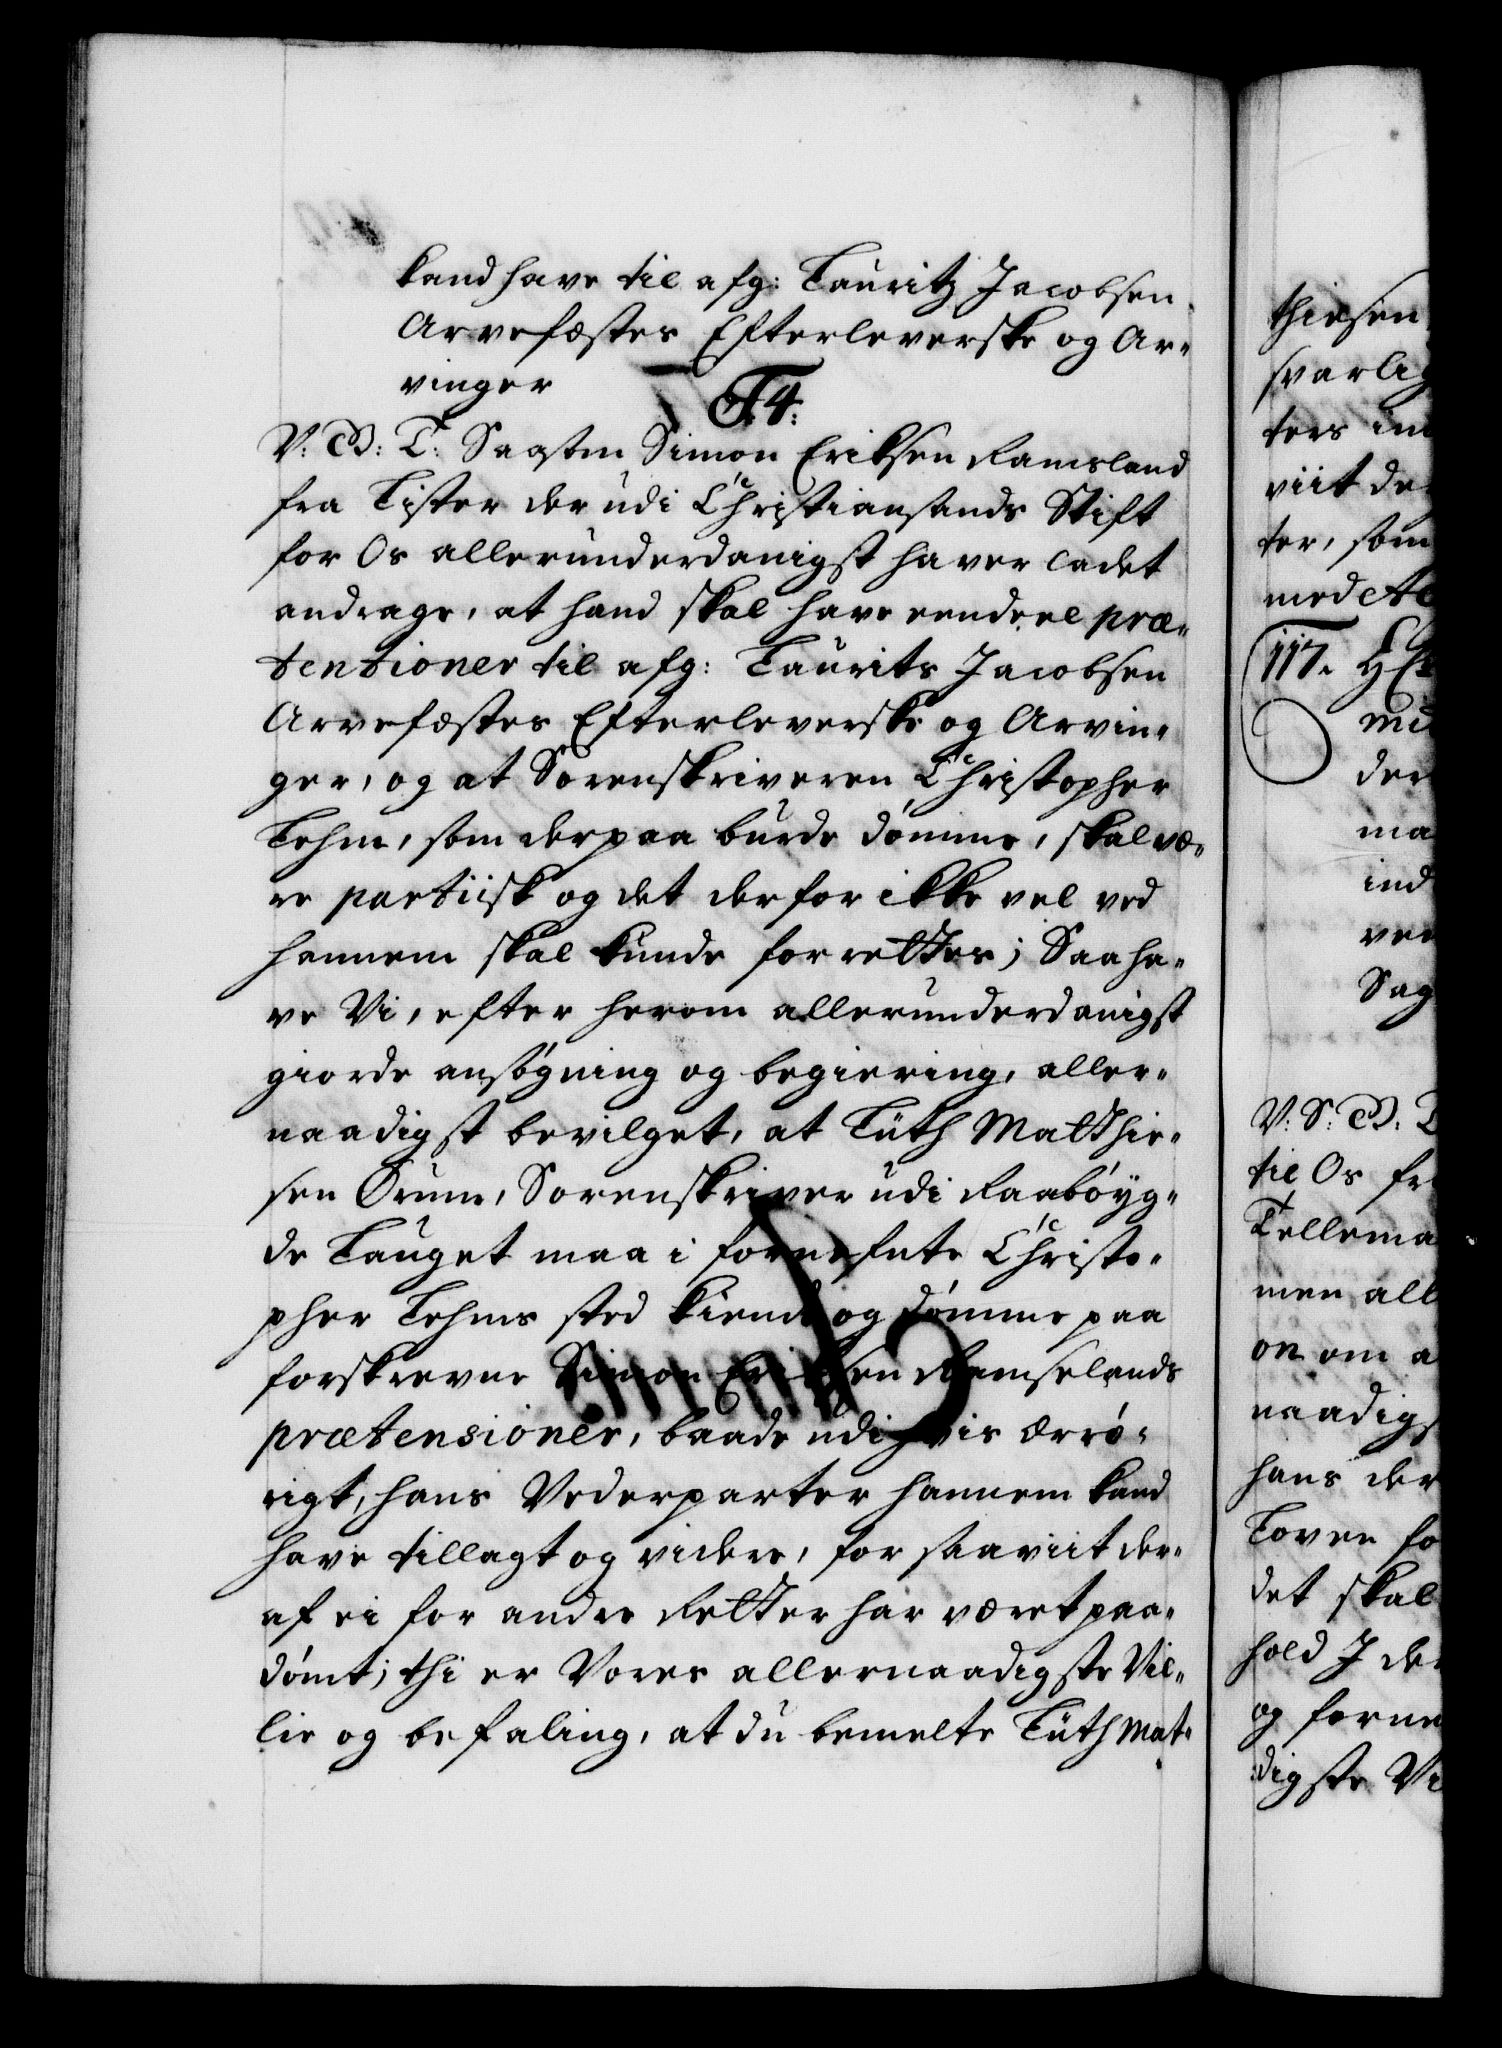 kand have til afg: Lauritz Jacobsen
Arvefæstes Efterleverske og Ar-
vinger
F. 4:
V: G: T: Saasom Simon Eriksen Ramsland
fra Lister der udi Christiansands Stift
for Os allerunderdanigst haver ladet
andrage, at hand skal have eendeel præ-
tentioner til afg: Laurits Jacobsen
Arvefæstes Efterleverske og Arvin-
ger, og at Sorenskriveren Christopher
Lehm, som derpaa burde dømme, skal væ-
re partiisk og det derfor ikke vel ved
hannem skal kunde forrettes; Saa ha-
ve Vi, efter herom allerunderdanigst
giorde ansøgning og begiering, aller-
naadigst bevilget, at Lüth Matthie-
sen Orum, Sorenskriver udi Raabøyg-
de Lauget maa i fornefnte Christo-
pher Lehms sted kiende og dømme paa
forskrevne Simon Eriksen Ramselands
prætensioner, baade udi hvis ærrø-
rigt, hans Vederparter hannem kand
have tillagt og videre, for saaviit der-
af ei for andre Retter har været paa-
dømt; thi er Vores allernaadigste Vil-
lie og befaling, at du bemelte Lüth Mat-
thiesen
svarlig
ters in
viit de
ter, som
med
117.
mi
der
ma
ind
ver
Sag
V: S: G: T
til Os fr
Tellema
men all
on om a
naadigs
hans der
Loven fo
det skal
hold I de
og forne
digste Vi